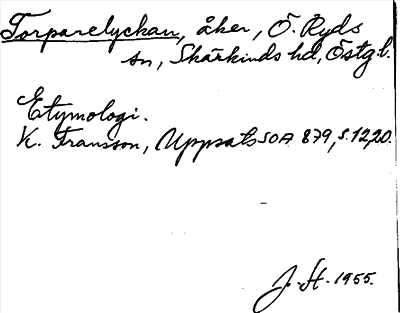 Torparelyckan, åker, Ö. Ryds
sn, Skärkinds hd, Östg l.
Etymologi.
K. Fransson, Uppsats SOA 879, s. 12, 20.
J. H. 1955.